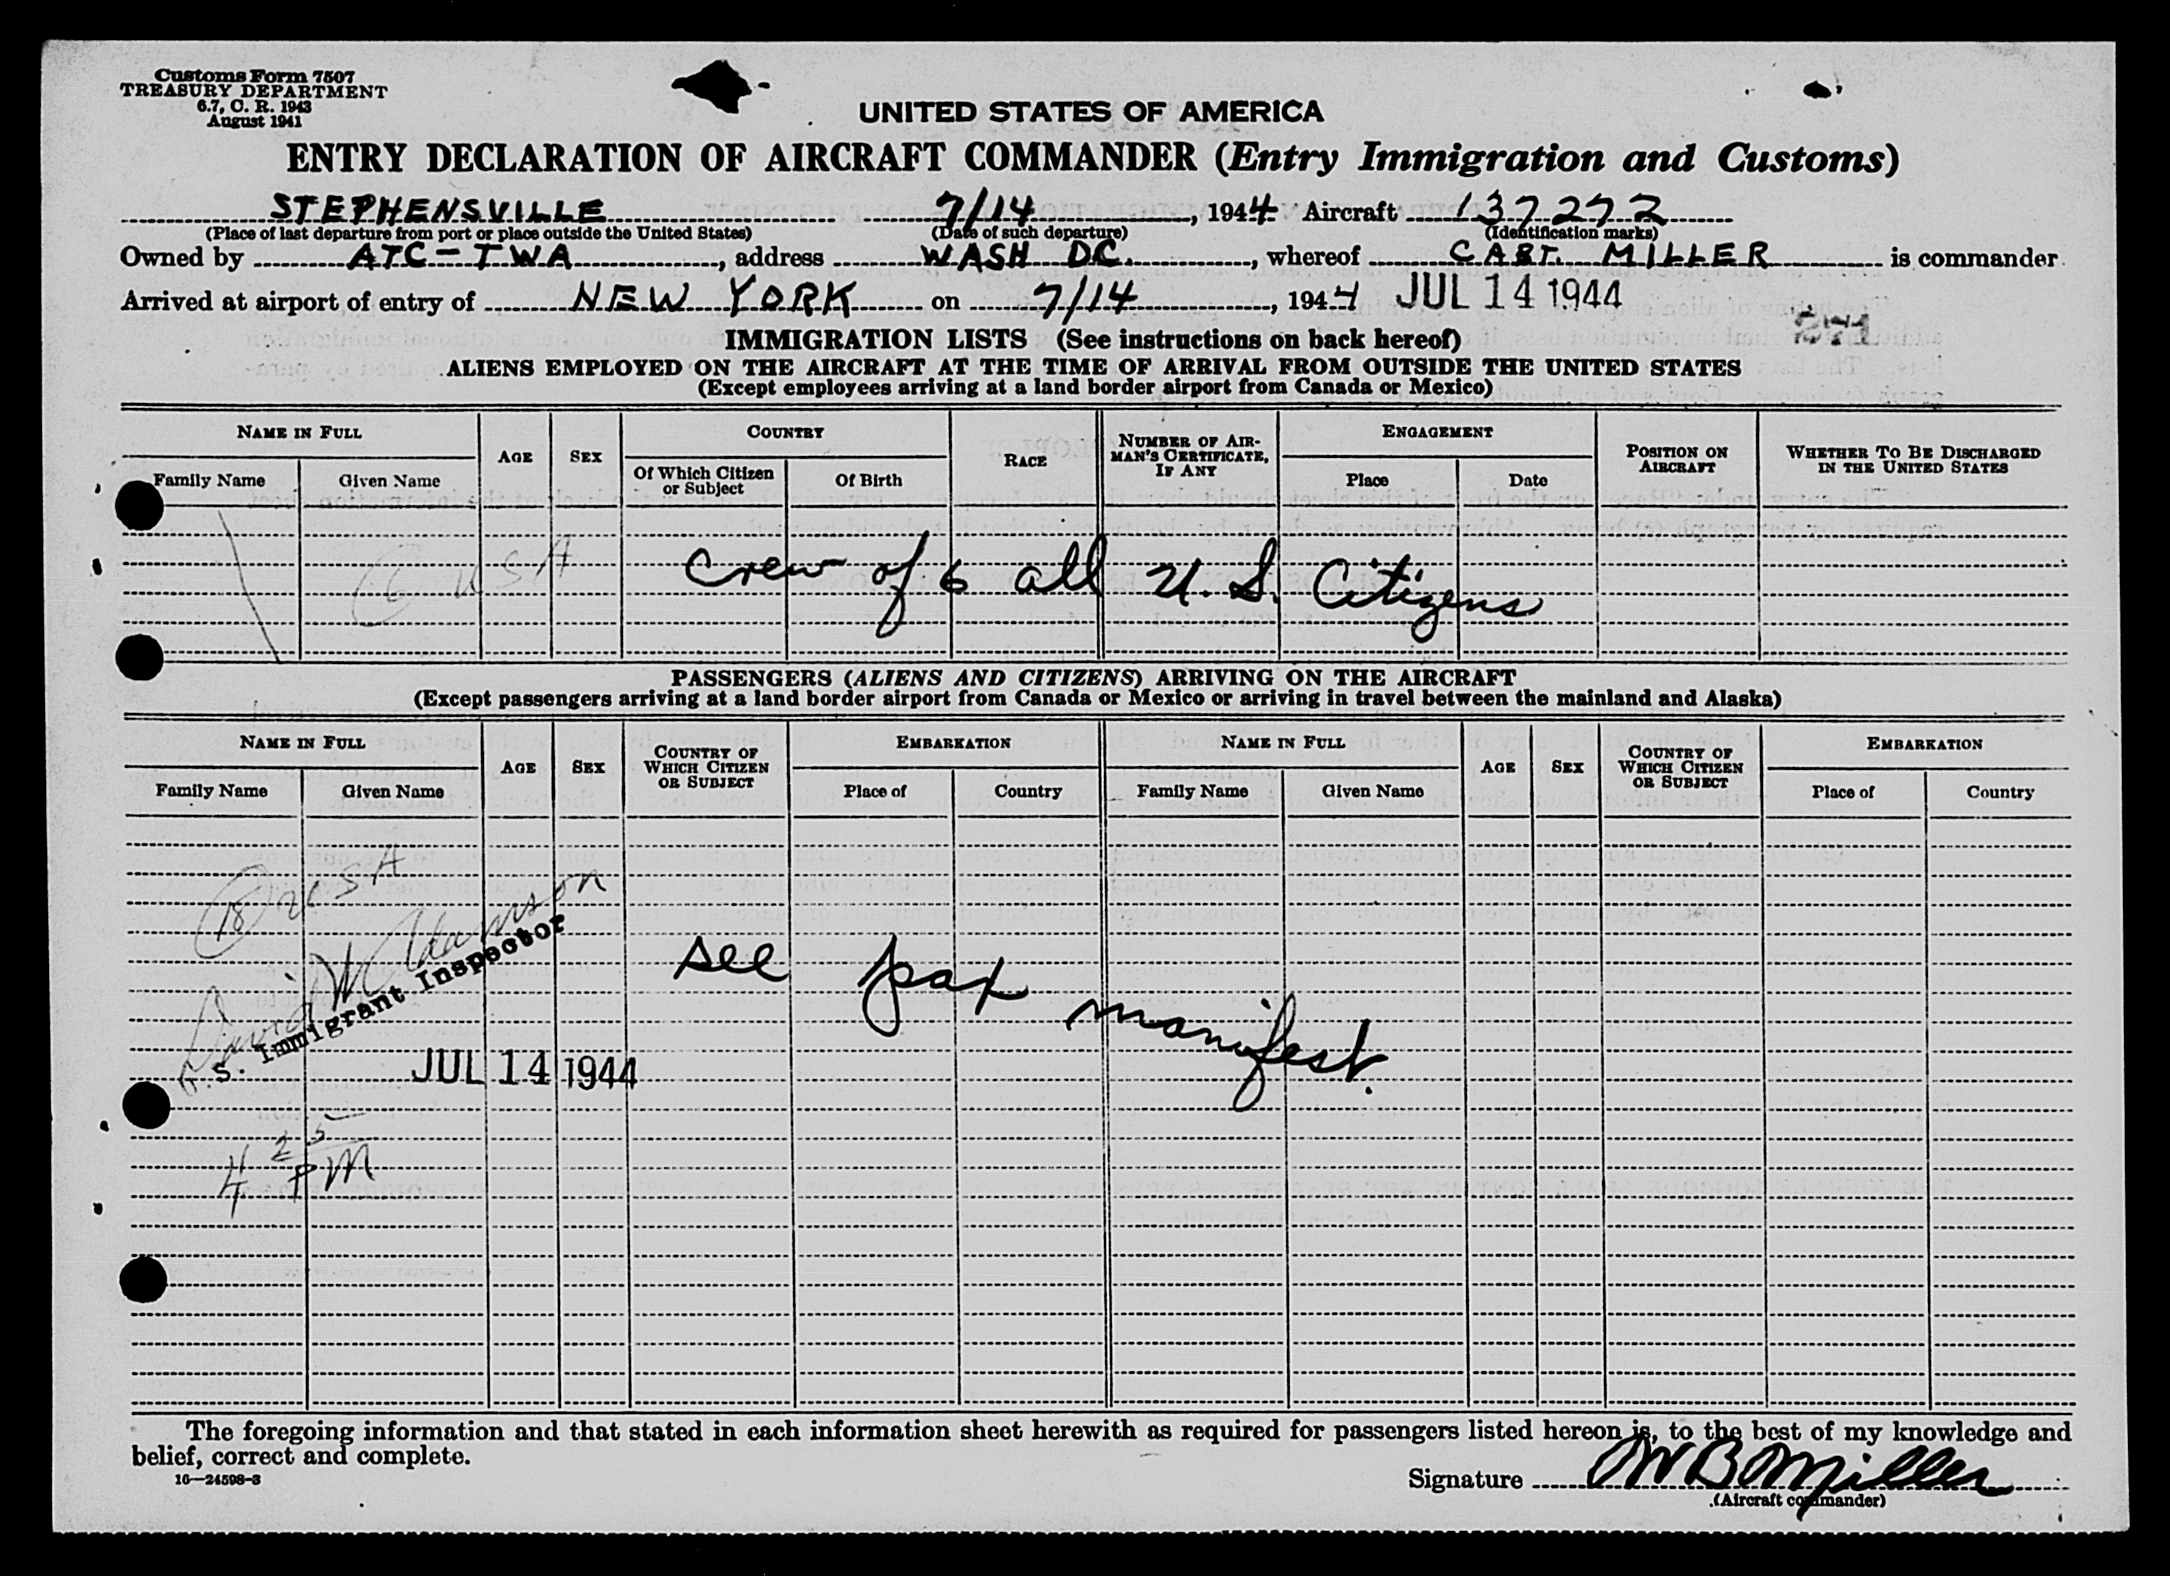 Customs Form 7507
TREASURY DEPARTMENT
6.7, C. R. 1943
August 1941
UNITED STATES OF AMERICA
ENTRY DECLARATION OF AIRCRAFT COMMANDER (Entry Immigration and Customs)
STEPHENSVILLE 7/14, 1944 Aircraft 137272
(Place of last departure from port or place outside the United States) (Date of such departure) (Identification marks)
Owned by ATC-TWA, address WASH DC., whereof CAPT. MILLER is commander.
Arrived at airport of entry of NEW YORK on 7/14, 1944 JUL 14 1944
IMMIGRATION LISTS (See instructions on back hereof)
ALIENS EMPLOYED ON THE AIRCRAFT AT THE TIME OF ARRIVAL FROM OUTSIDE THE UNITED STATES
(Except employees arriving at a land border airport from Canada or Mexico)
NAME IN FULL AGE SEX COUNTRY RACE NUMBER OF AIRMAN'S CERTIFICATE, IF ANY ENGAGEMENT POSITION ON AIRCRAFT WHETHER TO BE DISCHARGED IN THE UNITED STATES
Family Name Given Name Of Which Citizen or Subject Of Birth Place Date
6 USA Crew of 6 all U.S. Citizens
PASSENGERS (ALIENS AND CITIZENS) ARRIVING ON THE AIRCRAFT
(Except passengers arriving at a land border airport from Canada or Mexico or arriving in travel between the mainland and Alaska)
NAME IN FULL AGE SEX COUNTRY OF WHICH CITIZEN OR SUBJECT EMBARKATION NAME IN FULL AGE SEX COUNTRY OF WHICH CITIZEN OR SUBJECT EMBARKATION
Family Name Given Name Place of Country Family Name Given Name Place of Country
18 USA
David
U.S. Immigrant Inspector
see pax manifest.
JUL 14 1944
4 25 PM
The foregoing information and that stated in each information sheet herewith as required for passengers listed hereon is, to the best of my knowledge and
belief, correct and complete.
16—24598-3
Signature WB Miller
(Aircraft commander)